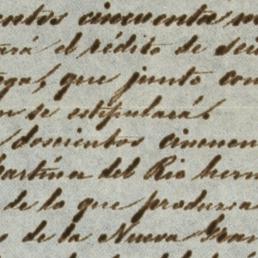 entos cincuenta m
ará el rédito de sei
gal, que junto con
n se estipulará,
doscientos cincuen
artina del Rio herm
de lo que produzca
s de la Nueva Gran